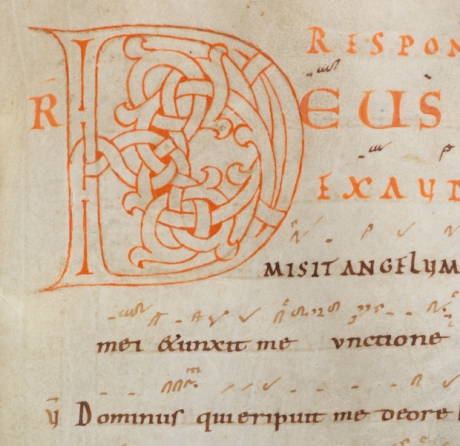 RESPON
R DEUS
EXAUD
MISIT ANGELUM
mei & unxit me unctione
V Dominus qui eripuit me deore